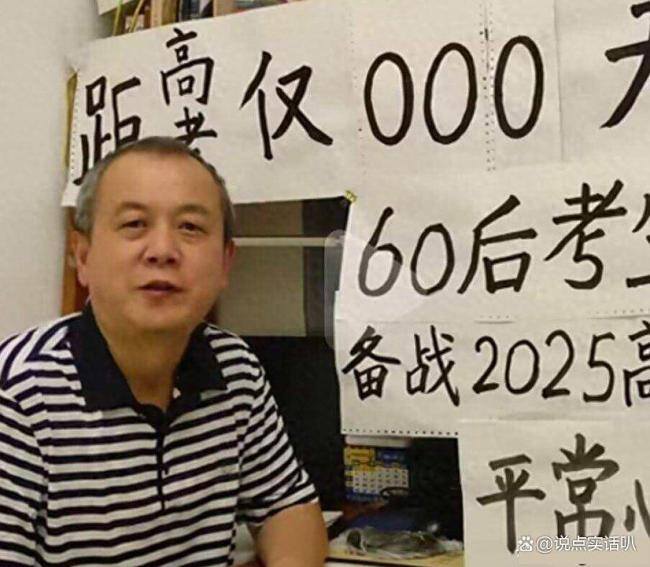 距高考仅000天
60后考生
备战2025高
平常心
@说点实话叭